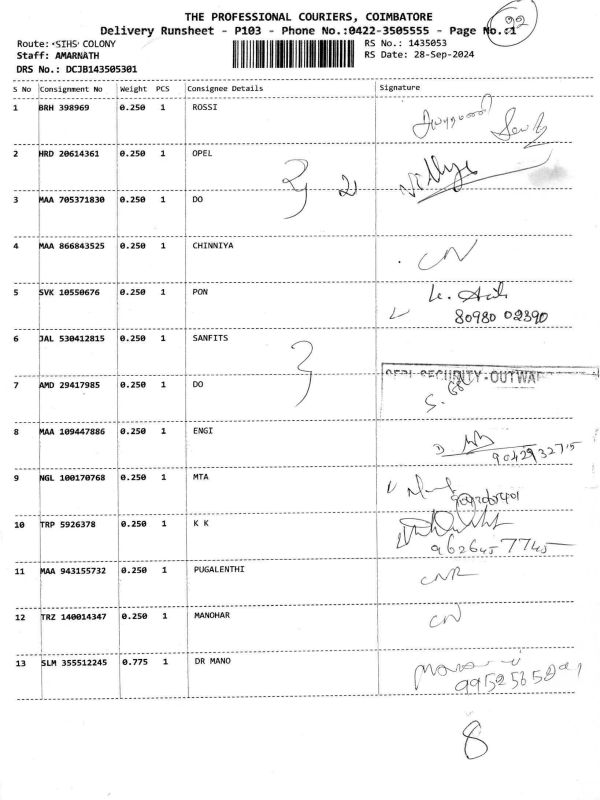 THE PROFESSIONAL COURIERS, COIMBATORE
22
Delivery Runsheet - P103 - Phone No.:0422-3505555 - Page No.:1
Route: SIHS COLONY
RS No.: 1435053
Staff: AMARNATH
RS Date: 28-Sep-2024
DRS No.: DCJB143505301
S No Consignment No Weight PCS Consignee Details Signature
1 BRH 398969 0.250 1 ROSSI
2 HRD 20614361 0.250 1 OPEL
3 MAA 705371830 0.250 1 DO
4 MAA 866843525 0.250 1 CHINNIYA CN
5 SVK 10550676 0.250 1 PON
80980 02390
6 JAL 530412815 0.250 1 SANFITS
SECURITY-OUTWA
7 AMD 29417985 0.250 1 DO
8 MAA 109447886 0.250 1 ENGI
9042932715
9 NGL 100170768 0.250 1 MTA
10 TRP 5926378 0.250 1 K K
9626457745
11 MAA 943155732 0.250 1 PUGALENTHI CNR
12 TRZ 140014347 0.250 1 MANOHAR CN
13 SLM 355512245 0.775 1 DR MANO
8